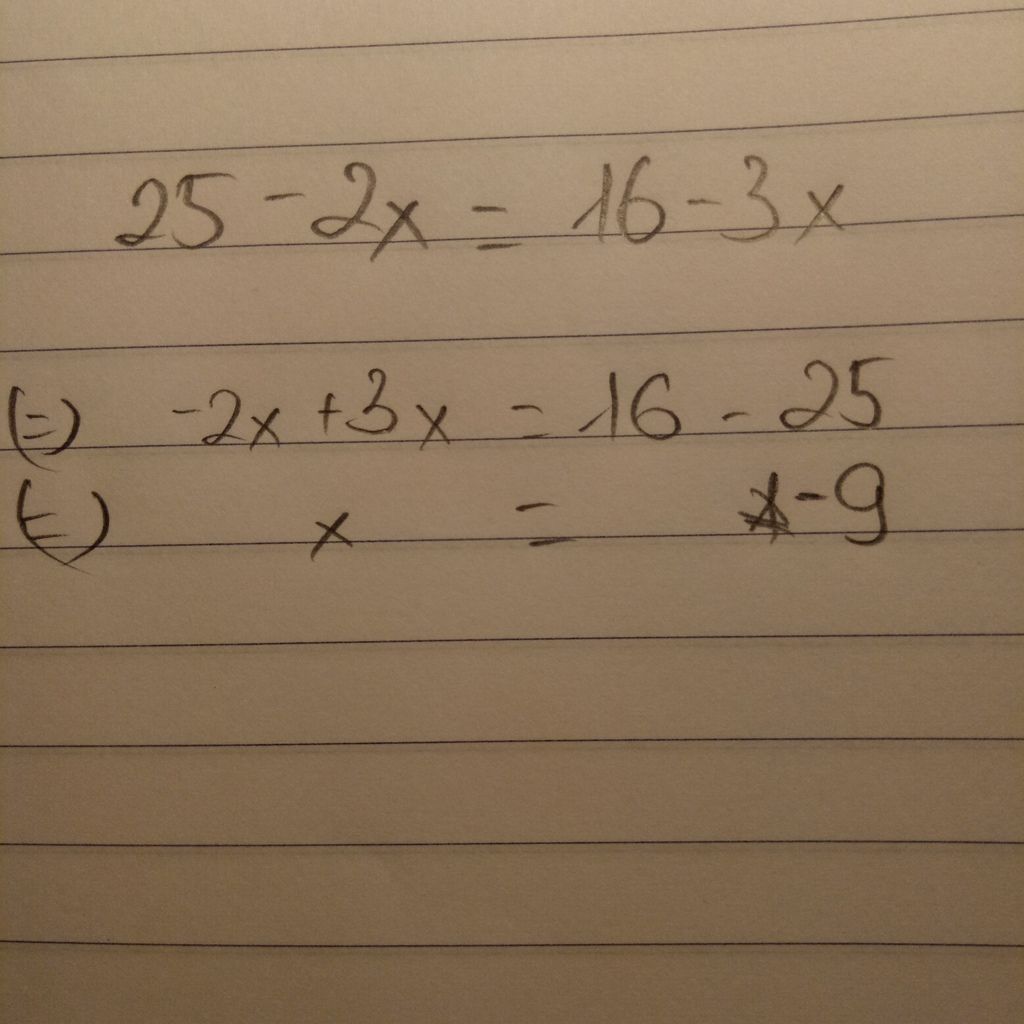 25 - 2x = 16 - 3x
(=) -2x + 3x = 16 - 25
(=) x = -9